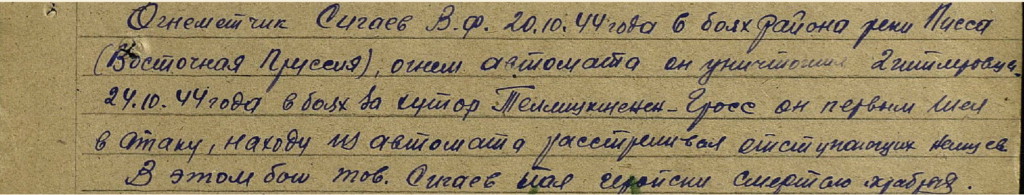 Огнеметчик Сигаев В.Ф. 20.10.44 года в боях района реки Писса
(Восточная Пруссия), огнем автомата он уничтожил 2 гитлеровца.
24.10.44 года в боях за хутор Гросс он первым шел
в атаку, находу из автомата расстреливал отступающих немцев.
В этом бою тов. Сигаев пал геройски смертью храбрых.